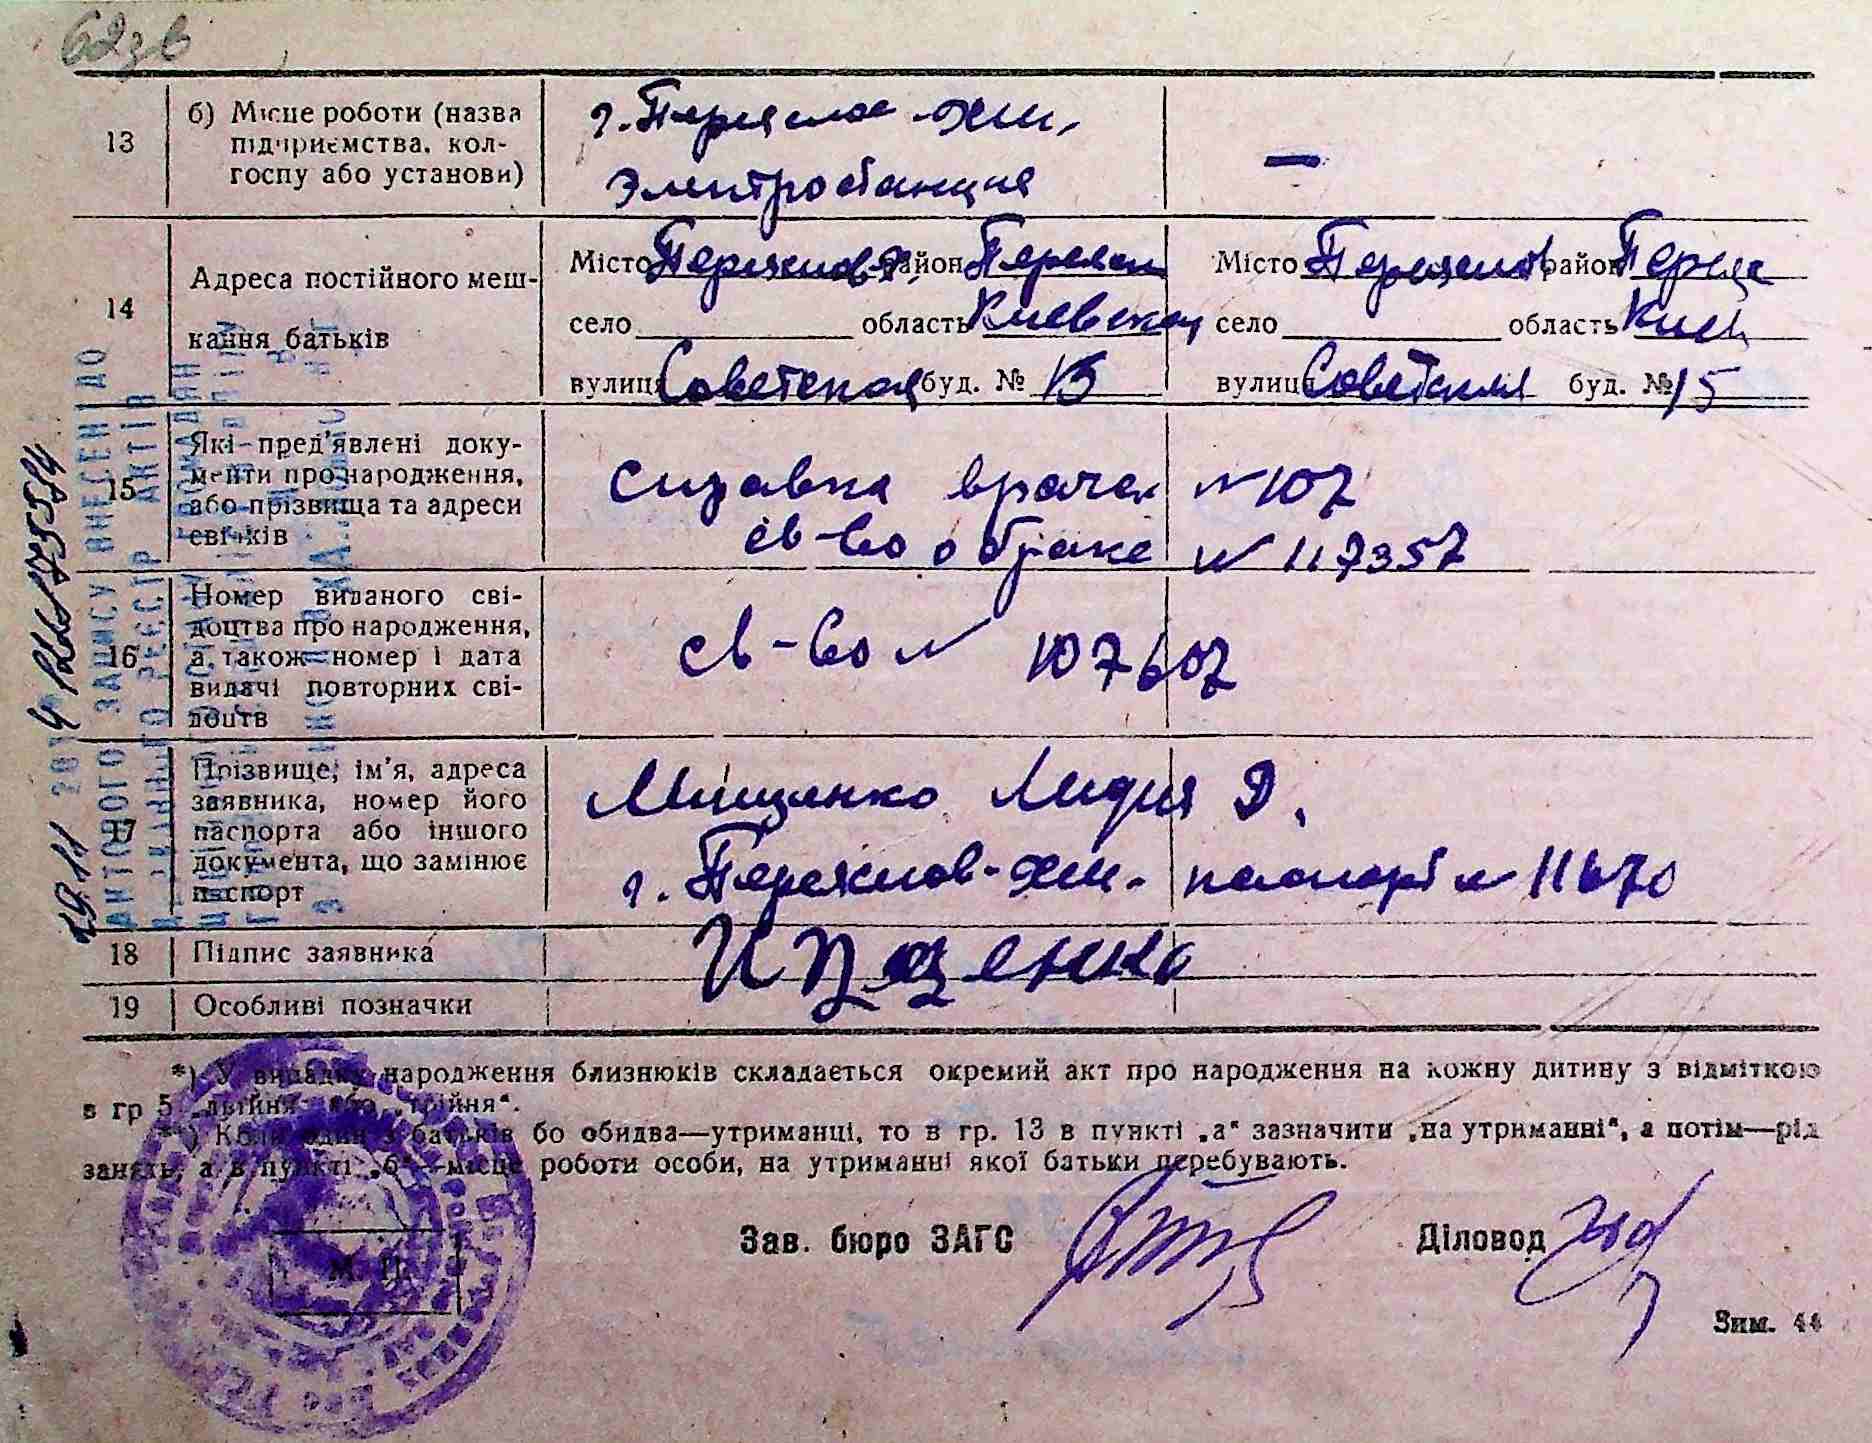 62зв
13
б) Місце роботи (назва
підприємства, кол-
госпу або установи)
г. Переяслав-Хм.
Электростанция
—
14
Адреса постійного меш-
кання батьків
Місто Переяслав-Х. район Переясл
село область Киевская
вулиця Советская буд. № 15
Місто Переяслав район Перея
село область Киев
вулиця Советская буд. № 15
15
Які пред'явлені доку-
менти про народження,
або прізвища та адреси
свідків
Справка врача №107
св-во о браке № 117357
16
Номер виданого сві-
доцтва про народження,
а також номер і дата
видачі повторних сві-
доцтв
св-во № 107607
17
Прізвище, ім'я, адреса
заявника, номер його
паспорта або іншого
документа, що замінює
паспорт
Мищенко Лидия Д.
г. Переяслав-Хм. паспорт № 11670
18
Підпис заявника
19
Особливі позначки
*) У випадку народження близнюків складається окремий акт про народження на кожну дитину з відміткою
в гр 5 „двійня“ або „трійня“.
**) Коли один з батьків бо обидва—утриманці, то в гр. 13 в пункті „а“ зазначити „на утриманні“, а потім—рід
занять, а в пункті „б“—місце роботи особи, на утриманні якої батьки перебувають.
М. П.
Зав. бюро ЗАГС
Діловод
Зим. 44
АКТОВОГО ЗАПИСУ ВНЕСЕНІ ДО
РЕЄСТР АКТІВ
ГРОМАДЯН
29.11